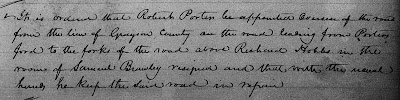 It is ordered that Robert Porter be appointed Overseer of the road
from the line of Grayson County on the road leading from Porters
ford to the forks of the road above Richard Hobbs in the
room of Samuel Brawley resigned and that with the usual
hands he keep the said road in repair